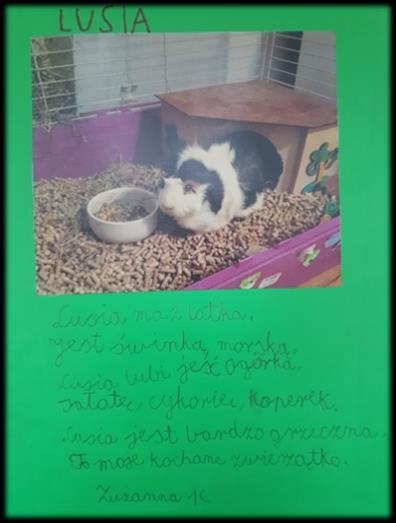 LUSIA
Lusia ma 2 latka.
Jest świnką morską.
Lusia lubi jeść ogórka,
sałatę, cykorię, koperek.
Lusia jest bardzo grzeczna.
To moje kochane zwierzątko.
Zuzanna 1C